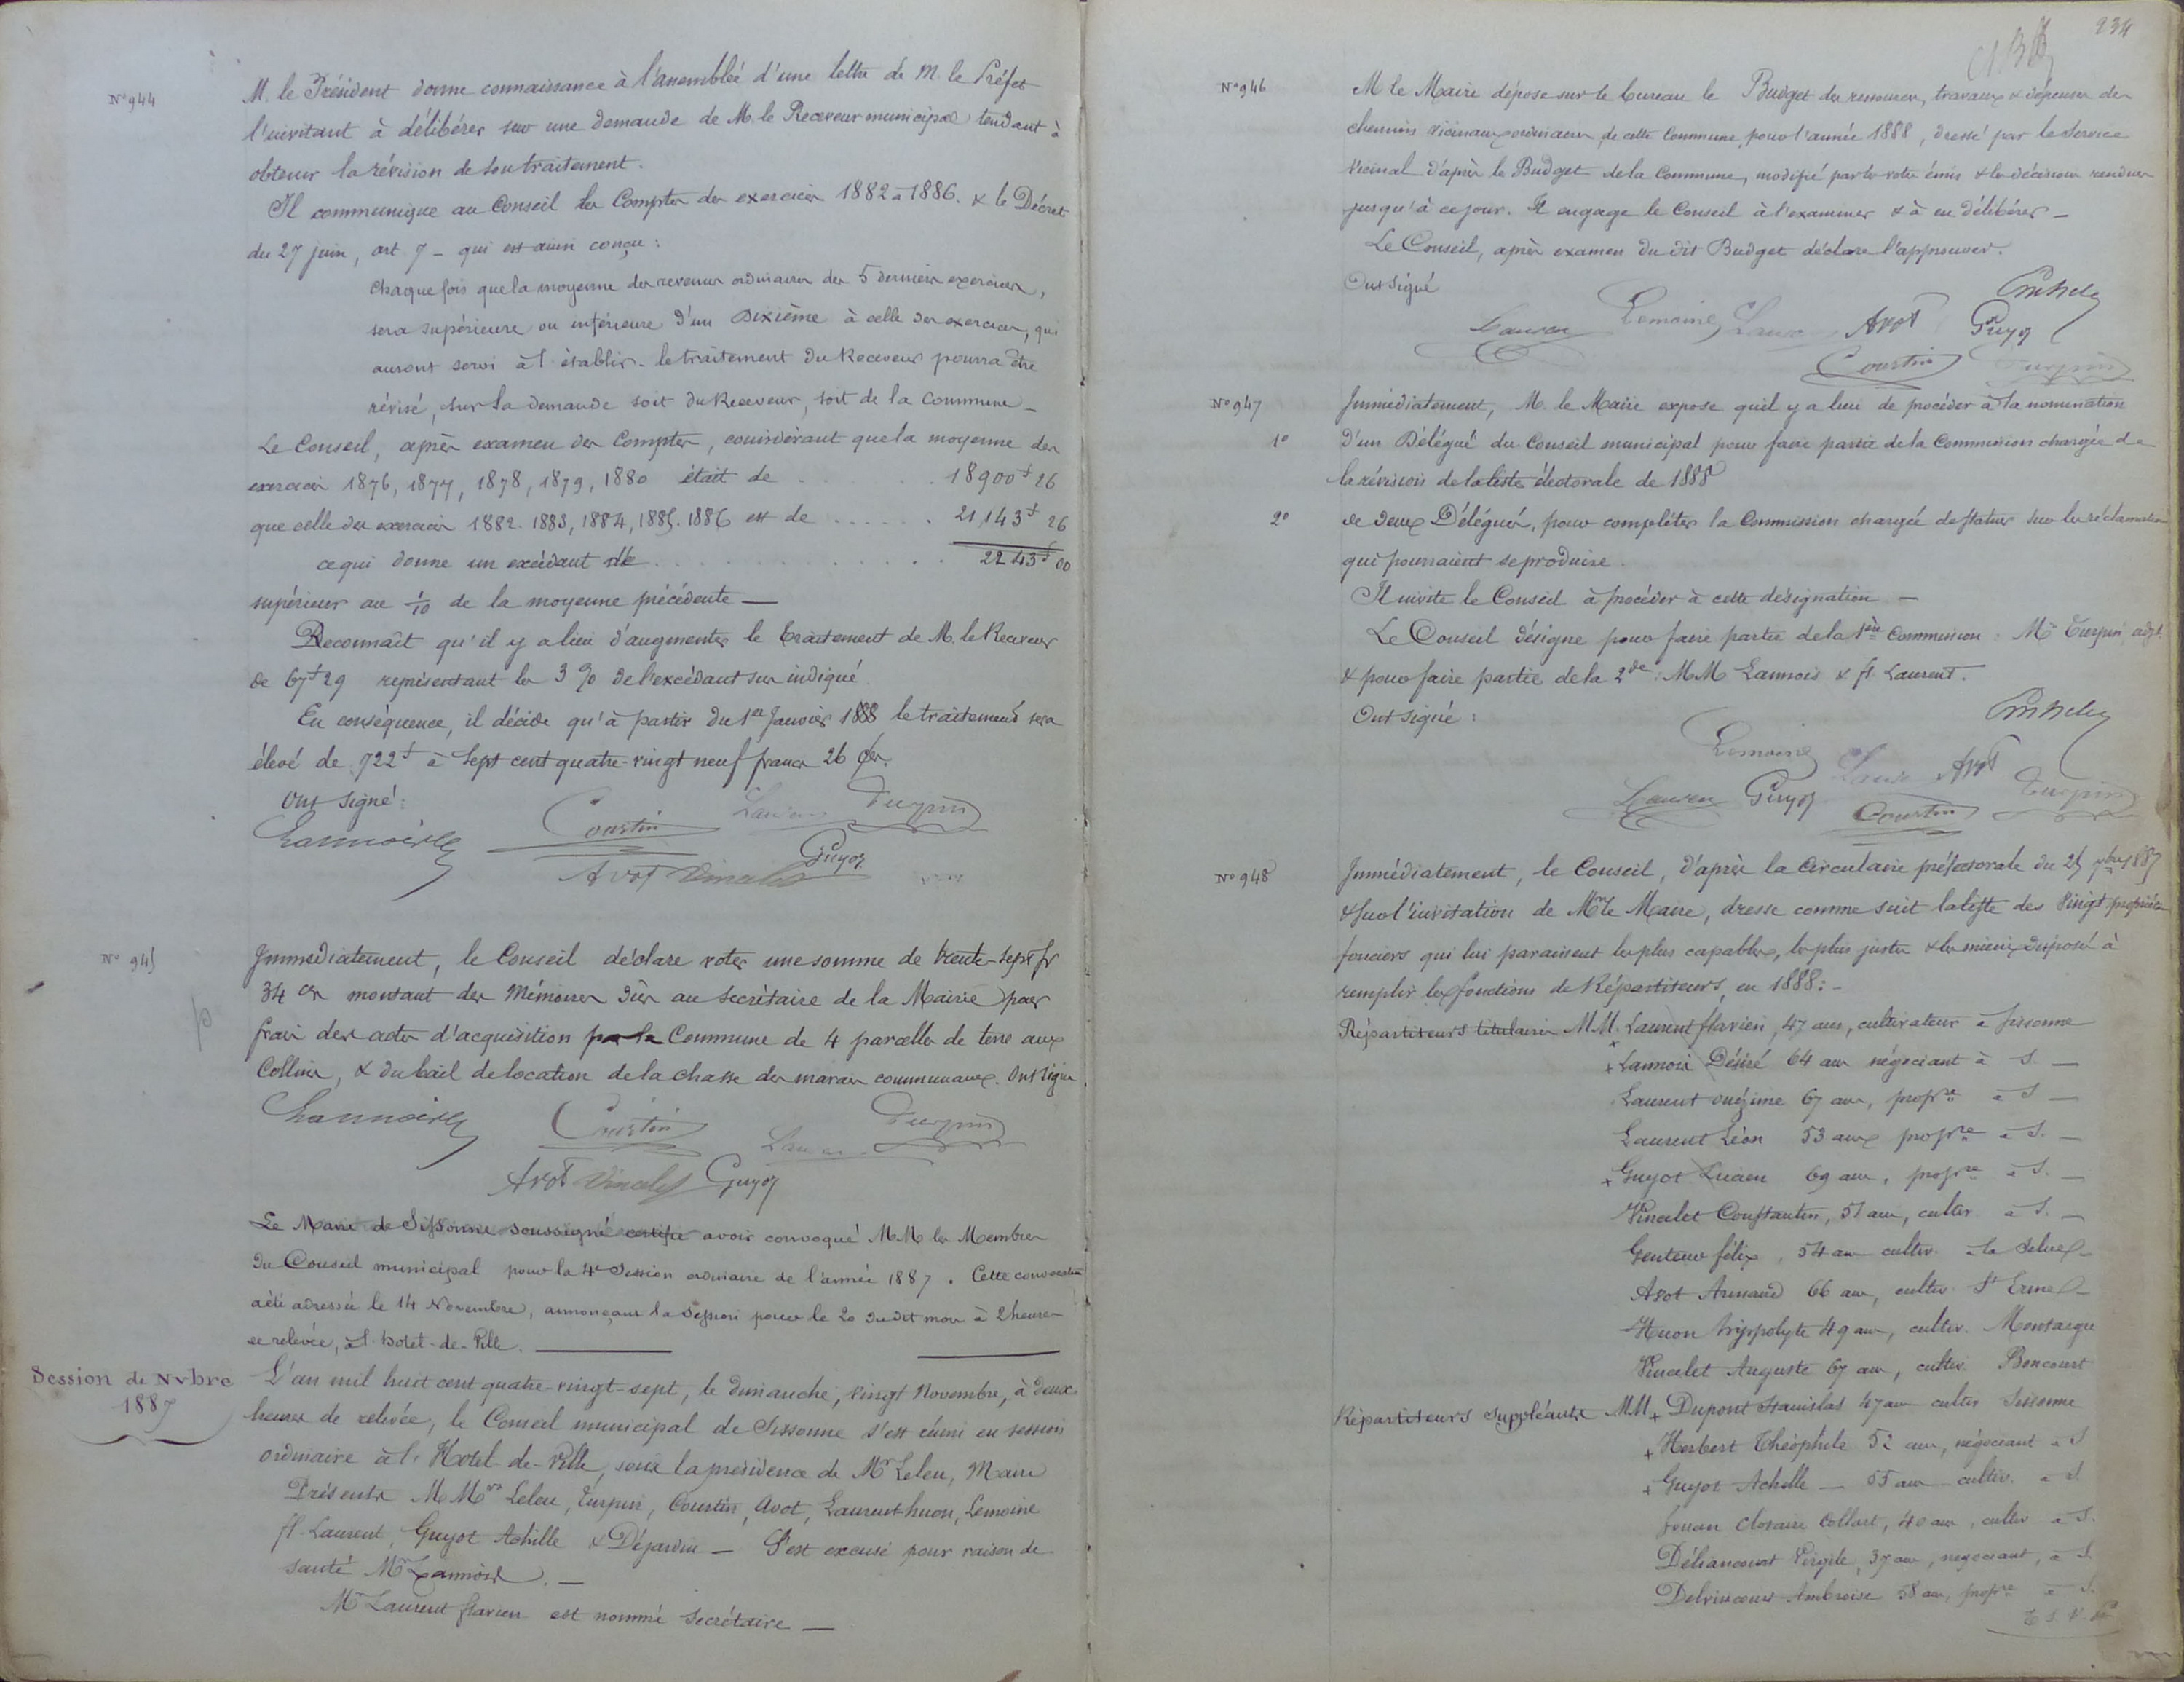 N° 944
M. le Président donne connaissance à l'assemblée d'une lettre de M. le Préfet
l'invitant à délibérer sur une demande de M. le Receveur municipal tendant à
obtenir la révision de son traitement.
Il communique au Conseil les Comptes des exercices 1882 à 1886. & le Décret
du 27 juin, art. 7 - qui est ainsi conçu :
chaque fois que la moyenne des revenus ordinaires des 5 derniers exercices,
sera supérieure ou inférieure d'un Dixième à celle des exercices, qui
auront servi à l'établir - le traitement du Receveur pourra être
révisé, sur la demande soit du Receveur, soit de la Commune -
Le Conseil, après examen des Comptes, considérant que la moyenne des
exercices 1876, 1877, 1878, 1879, 1880 était de . . . . . . 18900f 26
que celle des exercices 1882. 1883, 1884, 1885. 1886 est de . . . . . . 21,143f 26
ce qui donne un excédant de . . . . . . . . . . . . 2243f 00
supérieur au 1/10 de la moyenne précédente —
Reconnaît qu'il y a lieu d'augmenter le traitement de M. le Receveur
de 67f 29 représentant les 3 % de l'excédant sus indiqué
En conséquence, il décide qu'à partir du 1er Janvier 1888 le traitement sera
élevé de 722f à sept cent quatre-vingt neuf francs 26 ces.
Ont signé :
Lannois Courtin Laurent Turpin
Avot Vincelet Guyot
N° 945
Immédiatement, le Conseil déclare voter une somme de trente-sept fr
34 ces montant des Mémoires dûs au Secrétaire de la Mairie pour
frais des actes d'acquisition par la Commune de 4 parcelles de terre aux
Collines, & du bail de location de la chasse des marais communaux. Ont signé
Lannois Courtin Laurent Turpin
Avot Vincelet Guyot
Le Maire de Sissonne soussigné certifie avoir convoqué MM les Membres
du Conseil municipal pour la 4e Session ordinaire de l'année 1887. Cette convocation
a été adressée le 14 Novembre, annonçant la Session pour le 20 dudit mois à 2 heures
de relevée, à l'hotel-de-Ville.
Session de Nvbre
1887
L'an mil huit cent quatre-vingt-sept, le dimanche, vingt Novembre, à deux
heures de relevée, le Conseil municipal de Sissonne s'est réuni en session
ordinaire à l'Hotel-de-Ville, sous la présidence de Mr Leleu, Maire
Présents M Mrs Leleu, Turpin, Courtin, Avot, Laurent-huon, Lemoine
fl. Laurent, Guyot Achille & Déjardin — S'est excusé pour raison de
santé Mr Lannois. —
Mr Laurent flavien est nommé Secrétaire —
234
N° 946
M le Maire dépose sur le bureau le Budget des ressources, travaux & dépenses des
chemins vicinaux ordinaires de cette Commune, pour l'année 1888, dressé par le Service
Vicinal d'après le Budget de la Commune, modifié par les votes émis & les décisions rendues
jusqu'à ce jour. Il engage le Conseil à l'examiner & à en délibérer -
Le Conseil, après examen du dit Budget déclare l'approuver.
Ont signé
Laurent Lemoine Laurent Avot Guyot
Courtin Turpin
N° 947
Immédiatement, M. le Maire expose qu'il y a lieu de procéder à la nomination
1° d'un Délégué du Conseil municipal pour faire partie de la Commission chargée de
la révision de la liste électorale de 1888
2° de deux Délégués, pour compléter la Commission chargée de statuer sur les réclamations
qui pourraient se produire.
Il invite le Conseil à procéder à cette désignation —
Le Conseil désigne pour faire partie de la 1ère Commission : Mr Turpin, adjt.
& pour faire partie de la 2de : MM Lannois & fl. Laurent.
Ont signé :
Lemoine Laurent Avot Turpin
Laurent Guyot Courtin
N° 948
Immédiatement, le Conseil, d'après la Circulaire préfectorale du 25 1887
& sur l'invitation de Mr le Maire, dresse comme suit la liste des Vingt propriétaires
fonciers qui lui paraissent les plus capables, les plus justes & les mieux disposés à
remplir les fonctions de Répartiteurs, en 1888 : -
Répartiteurs titulaires MM. Laurent flavien, 47 ans, cultivateur à Sissonne
+ Lannois Désiré 64 ans négociant à S. —
Laurent onézime 67 ans, propre à S —
Laurent Léon 53 ans propre à S. —
+ Guyot Lucien 69 ans, propre à S. —
Vincelet Constantin, 51 ans, cultiv. à S. —
Genteur félix, 54 ans cultiv. à la Selve -
Avot Armand 66 ans, cultiv. St Erme -
Huon hippolyte 49 ans, cultiv. Montaigu
Vincelet Auguste 67 ans, cultiv. Boncourt
Répartiteurs suppléants MM + Dupont Stanislas 47 ans cultiv Sissonne
+ Herbert Théophile 52 ans, négociant à S
+ Guyot Achille — 55 ans cultiv. à S.
Clotaire Collart, 40 ans, cultiv à S.
Déliancourt Virgile, 37 ans, négociant, à S
Delvincourt Ambroise 58 ans, propre à S.
T S V P